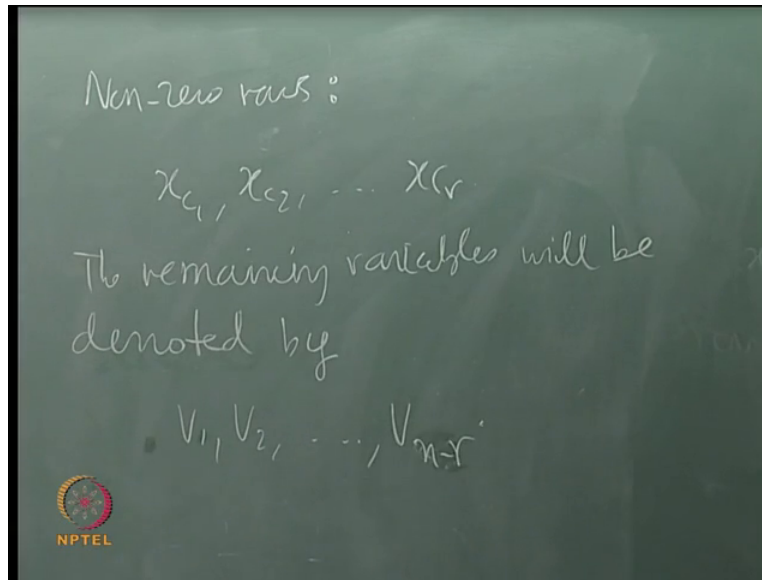 Non-zero rows :
x_{c_1}, x_{c_2}, ... x_{c_r}
The remaining variables will be
denoted by
V_1, V_2, ..., V_{n-r}.
NPTEL